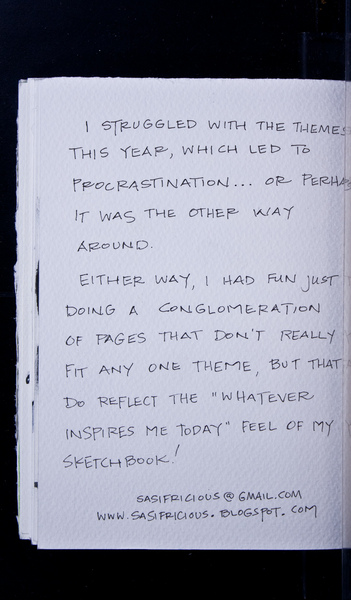 I STRUGGLED WITH THE THEMES
THIS YEAR, WHICH LED TO
PROCRASTINATION... OR PERHAPS
IT WAS THE OTHER WAY
AROUND.
EITHER WAY, I HAD FUN JUST
DOING A CONGLOMERATION
OF PAGES THAT DON'T REALLY
FIT ANY ONE THEME, BUT THAT
DO REFLECT THE "WHATEVER
INSPIRES ME TODAY" FEEL OF MY
SKETCHBOOK!
SASIFRICIOUS@GMAIL.COM
WWW.SASIFRICIOUS.BLOGSPOT.COM